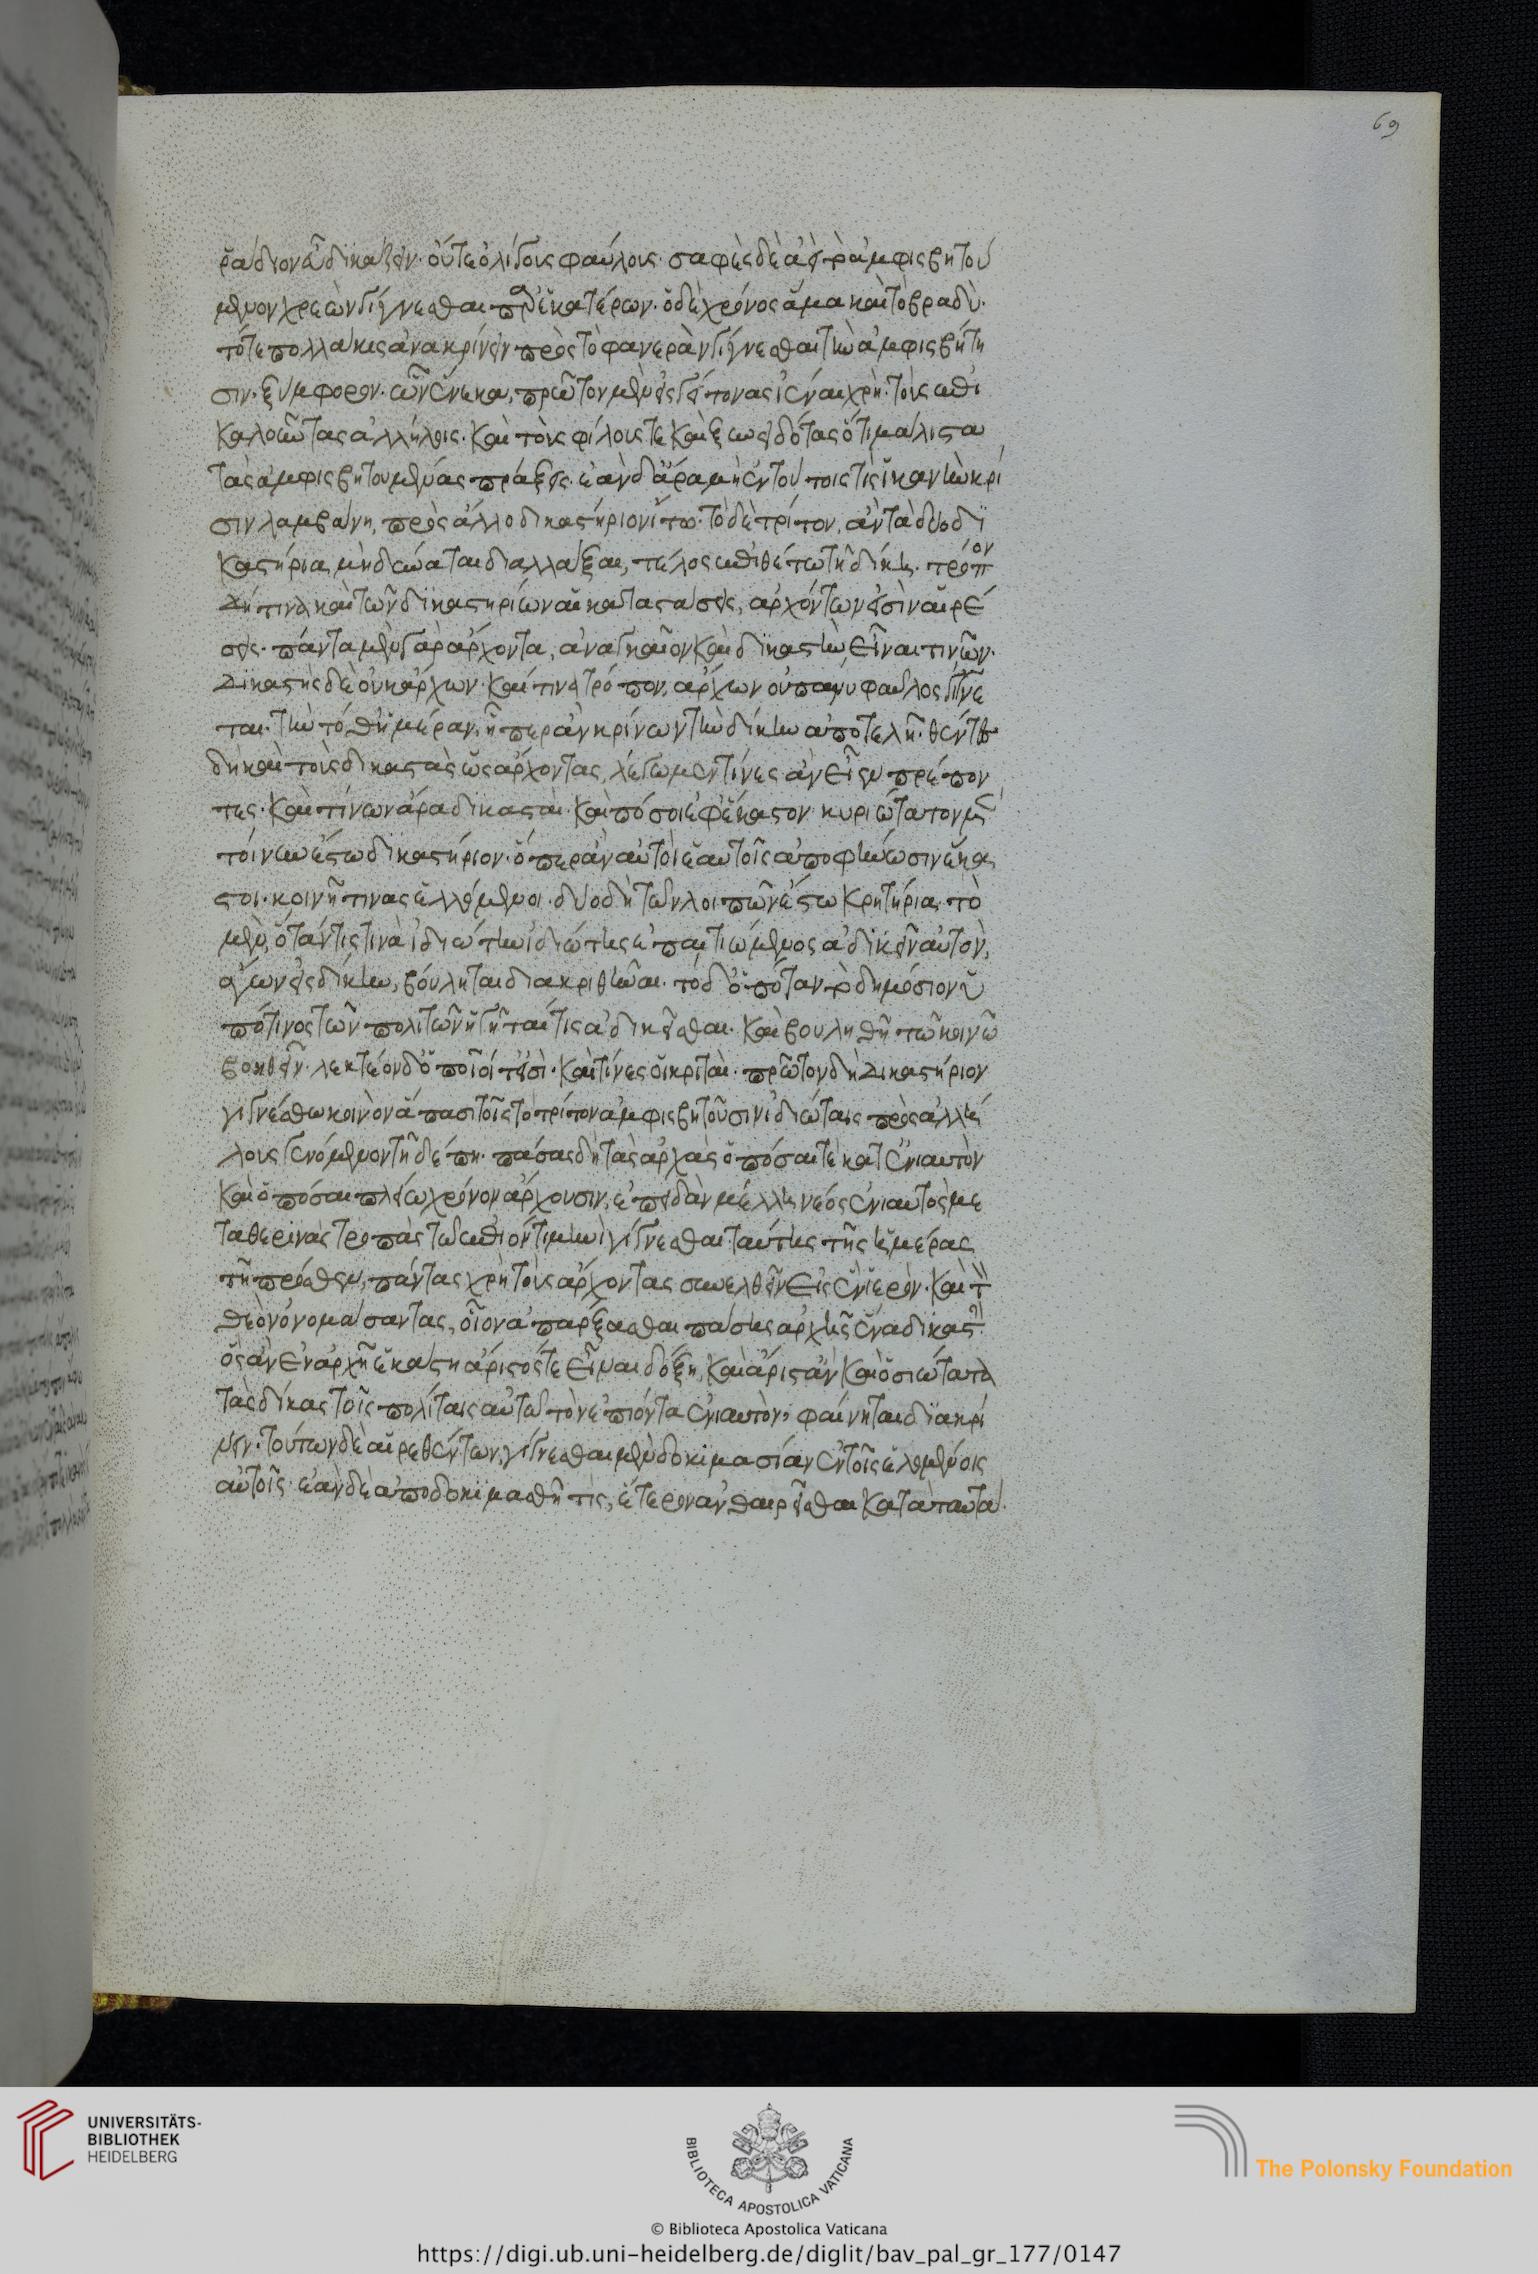 69
ῥάδιον εὖ δικάζειν· οὔτε ὀλίγοις φαύλοις· σαφὲς δὲ ἀεὶ τὸ ἀμφισβητού
μενον χρεὼν γίγνεσθαι παρ' ἑκατέρων· ὁ δὲ χρόνος ἅμα καὶ τὸ βραδὺ·
τό τε πολλάκις ἀνακρίνειν πρὸς τὸ φανερὰν γίγνεσθαι τὴν ἀμφισβήτη
σιν· ξύμφορον· ὧν ἕνεκα, πρῶτον μὲν εἰς γείτονας ἰέναι χρὴ· τοὺς ἐπι
καλοῦντας ἀλλήλοις· καὶ τοὺς φίλους τε καὶ ξυνειδότας ὅτι μάλιστα
τὰς ἀμφισβητουμένας πράξεις· ἐὰν δ' ἄρα μὴ ἐν τούτοις τὶς ἱκανὴν κρί
σιν λαμβάνη, πρὸς ἄλλο δικαστήριον ἴτω· τὸ δὲ τρίτον, ἂν τὰ δύο δι
καστήρια μὴ δύναται διαλλάξαι, τέλος ἐπιθέτω τῆ δίκη· τρόπον
δή τινα καὶ τῶν δικαστηρίων αἱ καταστάσεις, ἀρχόντων εἰσὶν αἱρέ
σεις· πάντα μὲν γὰρ ἄρχοντα, ἀναγκαῖον καὶ δικαστὴν εἶναι τινῶν·
δικαστὴς δὲ οὐκ ἄρχων· καί τινα τρόπον, ἄρχων οὐ πάνυ φαῦλος γίγνε
ται· τὴν τόθ' ἡμέραν, ἧπερ ἂν κρίνων τὴν δίκην ἀποτελῆ· θέντες
δὴ καὶ τοὺς δικαστὰς ὡς ἄρχοντας, λέγωμεν τίνες ἂν εἶεν πρέπον
τες· καὶ τίνων ἄρα δικασταὶ· καὶ πόσοι ἐφ' ἕκαστον· κυριώτατον μὲν
τοίνυν ἔστω δικαστήριον· ὅπερ ἂν αὐτοὶ ἑαυτοῖς ἀποφήνωσιν ἕκα
στοι· κοινῆ τινας ἑλόμενοι· δύο δὴ τῶν λοιπῶν ἔστω κριτήρια· τὸ
μὲν, ὅταν τίς τινὰ ἰδιώτην ἰδιώτης ἐπαιτιώμενος ἀδικεῖν αὐτὸν,
ἄγων εἰς δίκην, βούληται διακριθῆναι· τὸ δ' ὁπόταν τὸ δημόσιον ὑ
πό τινος τῶν πολιτῶν ἡγῆται τὶς ἀδικεῖσθαι· καὶ βουληθῆ τῶ κοινῶ
βοηθεῖν· λεκτέον δ' ὁποῖοί τ' εἰσὶ· καὶ τίνες οἱ κριταὶ· πρῶτον δὴ δικαστήριον
γιγνέσθω κοινὸν ἅπασι τοῖς τὸ τρίτον ἀμφισβητοῦσιν ἰδιώταις πρὸς ἀλλή
λους γενόμενον τῆδέ πη· πάσας δὴ τὰς ἀρχὰς ὁπόσαι τε κατ' ἐνιαυτὸν
καὶ ὁπόσαι πλείω χρόνον ἄρχουσιν, ἐπειδὰν μέλλη νέος ἐνιαυτὸς με
τὰ θερινὰς τροπὰς τῶ ἐπιόντι μηνὶ γίγνεσθαι· ταύτης τῆς ἡμέρας
τῆ πρόσθεν, πάντας χρὴ τοὺς ἄρχοντας συνελθεῖν εἰς ἓν ἱερὸν· καὶ τὸν
θεὸν ὀνομάσαντας, οἷον ἀπαρξασθαι πάσης ἀρχῆς ἕνα δικαστὴν·
ὃς ἂν ἐν ἀρχῆ ἑκάστη ἄριστός τε εἶναι δόξη, καὶ ἄριστ' ἂν καὶ ὁσιώτατα
τὰς δίκας τοῖς πολίταις αὐτοῦ τὸν ἐπιόντα ἐνιαυτὸν, φαίνηται διακρί
νειν· τούτων δὲ αἱρεθέντων, γίγνεσθαι μὲν δοκιμασίαν ἐν τοῖς ἑλομένοις
αὐτοῖς· ἐὰν δὲ ἀποδοκιμασθῆ τὶς, ἕτερον ἀνθαιρεῖσθαι κατὰ ταὐτὰ·
UNIVERSITÄTS-
BIBLIOTHEK
HEIDELBERG
BIBLIOTECA APOSTOLICA VATICANA
The Polonsky Foundation
© Biblioteca Apostolica Vaticana
https://digi.ub.uni-heidelberg.de/diglit/bav_pal_gr_177/0147